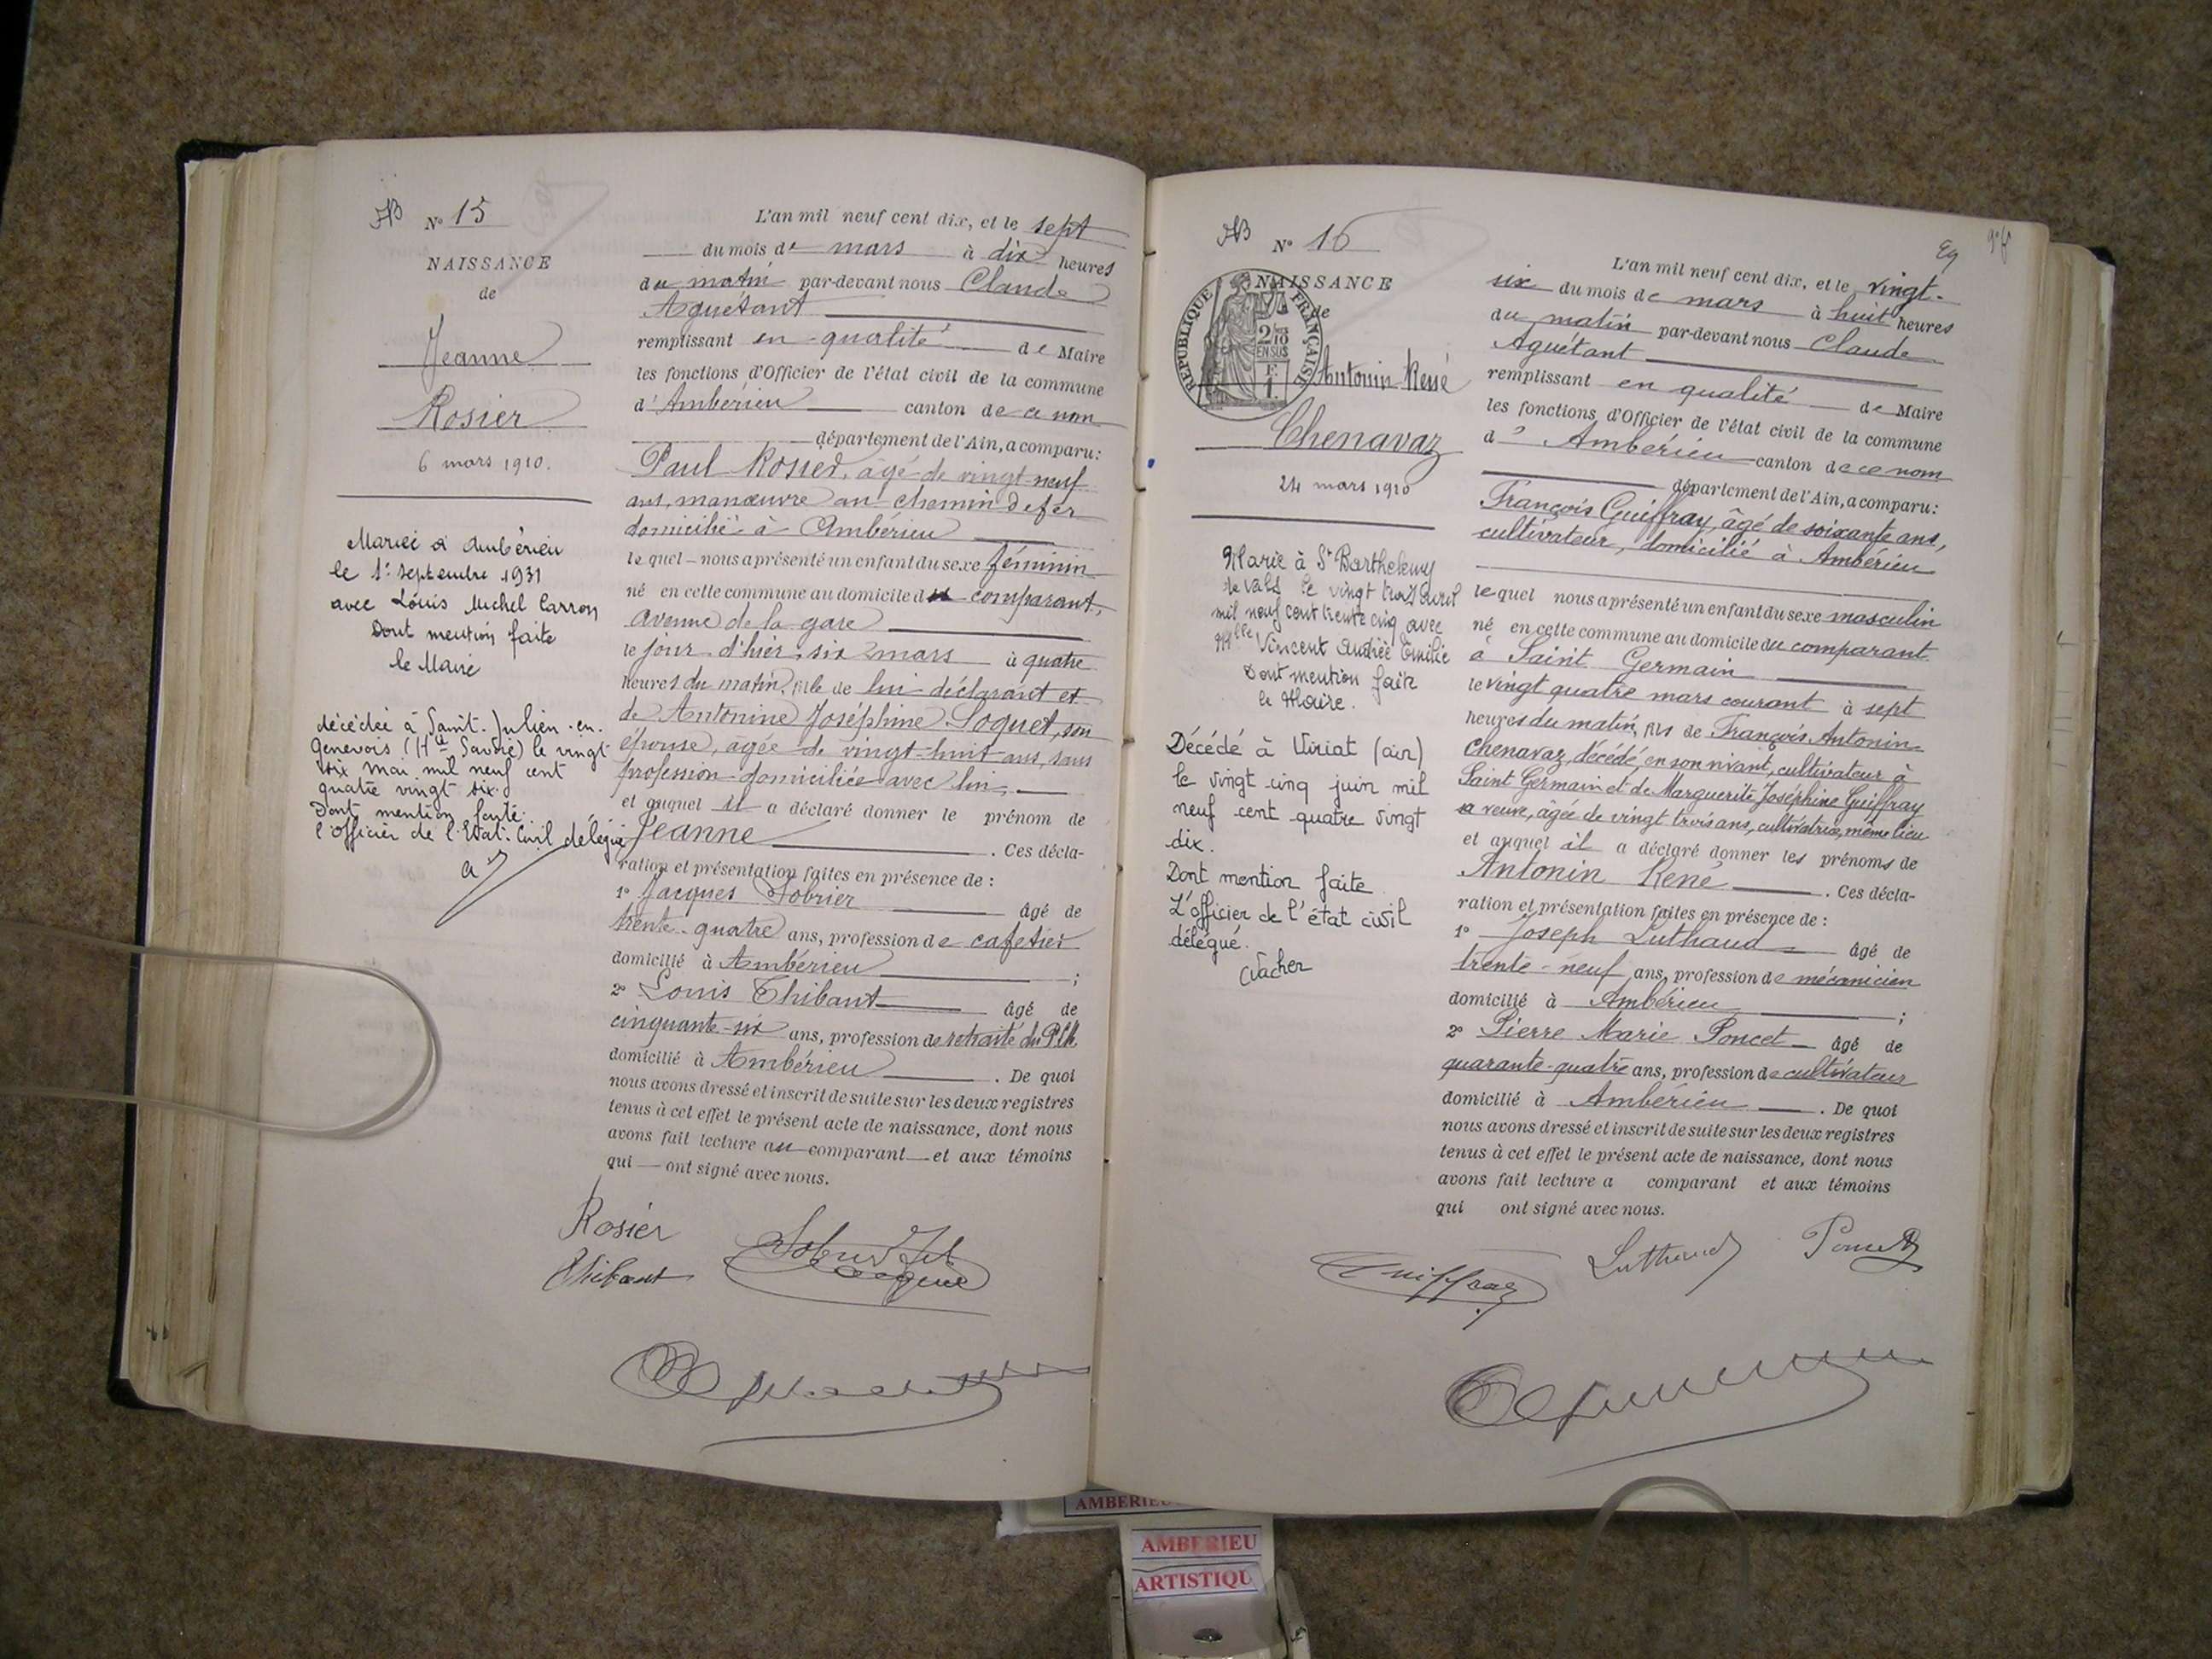 AB
N° 15
NAISSANCE
de
Jeanne
Rosier
6 mars 1910.
Mariée à Ambérieu
le 1er Septembre 1931
avec Louis Michel Carron
Dont mention faite
le Maire
décédée à Saint-Julien-en-
Genevois (Hte Savoie) le vingt
six mai mil neuf cent
quatre vingt six.
Dont mention faite.
l'officier de l'Etat-Civil délégué
L'an mil neuf cent dix, et le sept
du mois de mars à dix heures
du matin par-devant nous Claude
Aguétant
remplissant en qualité de Maire
les fonctions d'Officier de l'état civil de la commune
d'Ambérieu canton de ce nom
département de l'Ain, a comparu:
Paul Rosier, âgé de vingt-neuf
ans, manœuvre au chemin de fer
domicilié à Ambérieu
le quel nous a présenté un enfant du sexe féminin
né en cette commune au domicile du comparant,
avenue de la gare
le jour d'hier, six mars à quatre
heures du matin, fille de lui déclarant et
de Antonine Joséphine Soquet, son
épouse, âgée de vingt-huit ans, sans
profession domiciliée avec lui,
et auquel il a déclaré donner le prénom de
Jeanne . Ces décla-
ration et présentation faites en présence de :
1° Jacques Sobrier âgé de
trente-quatre ans, profession de cafetier
domicilié à Ambérieu ;
2° Louis Thibaut âgé de
cinquante-six ans, profession de retraité du PLM
domicilié à Ambérieu . De quoi
nous avons dressé et inscrit de suite sur les deux registres
tenus à cet effet le présent acte de naissance, dont nous
avons fait lecture au comparant et aux témoins
qui ont signé avec nous.
Rosier
Thibaut
AB
N° 16
NAISSANCE
de
RÉPUBLIQUE FRANÇAISE
2/10
EN SUS
F.
1.
Antonin René
Chenavaz
24 mars 1910
Marié à St Barthelemy
de Vals le vingt trois avril
mil neuf cent trente cinq avec
Mlle Vincent Andrée Emilie
Dont mention faite
le Maire.
Décédé à Viriat (ain)
le vingt cinq juin mil
neuf cent quatre vingt
dix.
Dont mention faite
L'officier de l'état civil
délégué.
Vacher
L'an mil neuf cent dix, et le vingt-
six du mois de mars à huit heures
du matin par-devant nous Claude
Aguétant
remplissant en qualité de Maire
les fonctions d'Officier de l'état civil de la commune
d' Ambérieu canton de ce nom
département de l'Ain, a comparu:
François Guiffray, âgé de soixante ans,
cultivateur, domicilié à Ambérieu
le quel nous a présenté un enfant du sexe masculin
né en cette commune au domicile du comparant
à Saint Germain
le vingt quatre mars courant à sept
heures du matin, fils de François Antonin
Chenavaz, décédé, en son vivant, cultivateur à
Saint Germain et de Marguerite Joséphine Guiffray
sa veuve, âgée de vingt trois ans, cultivatrice, même lieu
et auquel il a déclaré donner les prénoms de
Antonin René . Ces décla-
ration et présentation faites en présence de :
1° Joseph Luthaud âgé de
trente-neuf ans, profession de mécanicien
domicilié à Ambérieu ;
2° Pierre Marie Poncet âgé de
quarante-quatre ans, profession de cultivateur
domicilié à Ambérieu . De quoi
nous avons dressé et inscrit de suite sur les deux registres
tenus à cet effet le présent acte de naissance, dont nous
avons fait lecture a comparant et aux témoins
qui ont signé avec nous.
Guiffray
Luthaud
Poncet
AMBERIEU
AMBERIEU
ARTISTIQU